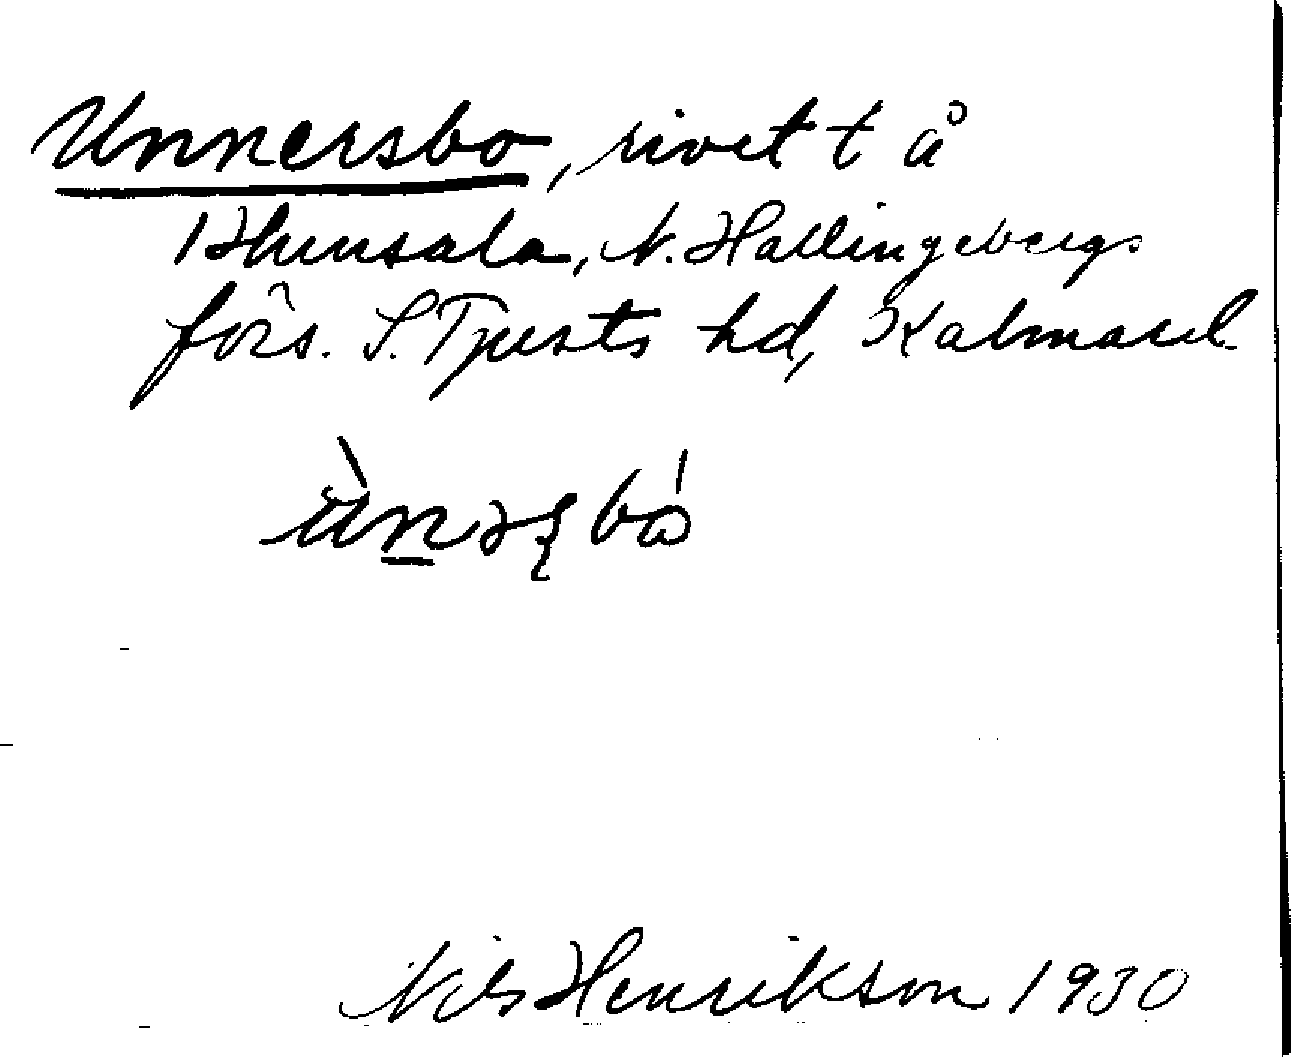 Unnersbo, rivet t å
Hunsala, N. Hallingebergs
förs. S. Tjusts hd, Kalmar l.
Nils Henrikson 1930